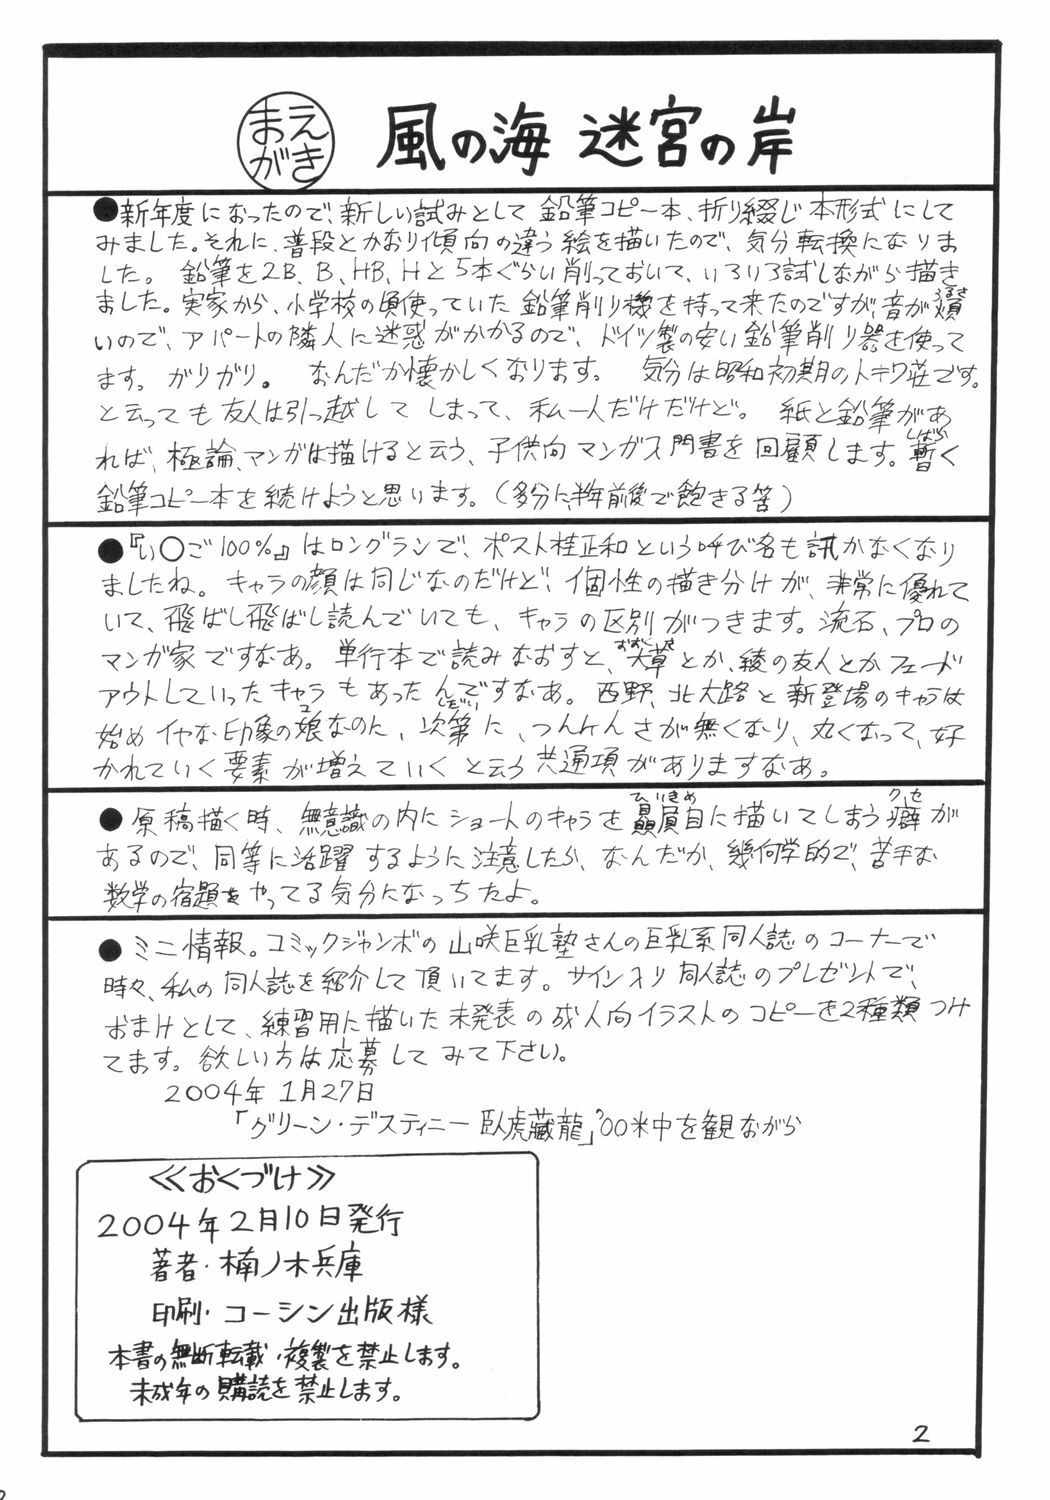 まえがき 風の海 迷宮の岸
●新年度になったので、新しい試みとして 鉛筆コピー本、折り綴じ本形式にして
みました。それに、普段とかなり傾向の違う絵を描いたので、気分転換になりま
した。 鉛筆を2B、B、HB、Hと5本ぐらい削っておいて、いろいろ試しながら描き
ました。実家から、小学校の頃使っていた鉛筆削り機を持って来たのですが、音が煩(うるさ)
いので、アパートの隣人に迷惑がかかるので、ドイツ製の安い鉛筆削り器を使って
ます。ガリガリ。 なんだか懐かしくなります。 気分は昭和初期のトキワ荘です。
と云っても友人は引っ越してしまって、私一人だけだけど。 紙と鉛筆があ
れば、極論、マンガは描けると云う、子供向マンガ入門書を回顧します。暫(しばら)く
鉛筆コピー本を続けようと思います。(多分に半年前後で飽きる筈)
●『い○ご100%』はロングランで、ポスト桂正和という呼び名も訊かなくなり
ましたね。キャラの顔は同じなのだけど、個性の描き分けが、非常に優れて
いて、飛ばし飛ばし読んでいても、キャラの区別がつきます。流石、プロの
マンガ家ですなあ。単行本で読みなおすと、大草とか、綾の友人とかフェード
アウトしていったキャラもあったんですなあ。西野、北大路と新登場のキャラは
始めイヤな印象の娘(コ)なのに、次第(しだい)に、つんけんさが無くなり、丸くなって、好
かれていく要素が増えていくと云う共通項がありますなあ。
●原稿描く時、無意識の内にショートのキャラを贔屓目(ひいきめ)に描いてしまう癖(クセ)が
あるので、同等に活躍するように注意したら、なんだか、幾何学的で、苦手な
数学の宿題をやってる気分になっちたよ。
●ミニ情報。コミックジャンボの山咲巨乳塾さんの巨乳系同人誌のコーナーで
時々、私の同人誌を紹介して頂いてます。サイン入り同人誌のプレゼントで、
おまけとして、練習用に描いた未発表の成人向イラストのコピーを2種類つけ
てます。欲しい方は応募してみて下さい。
2004年1月27日
「グリーン・デスティニー 臥虎藏龍」'00米中を観ながら
≪おくづけ≫
2004年2月10日発行
著者・楠ノ木兵庫
印刷・コーシン出版様
本書の無断転載・複製を禁止します。
未成年の購読を禁止します。
2